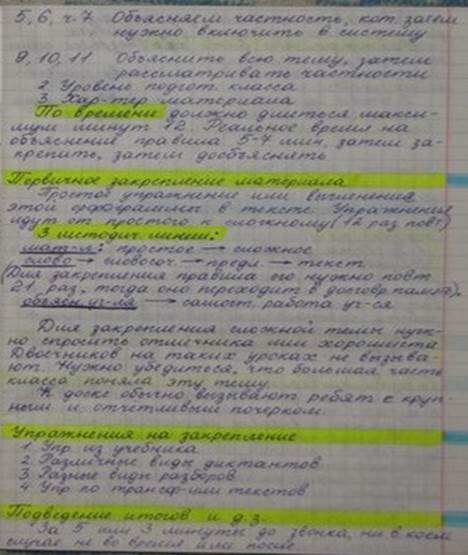 5, 6, ч. 7 Объясняем частность, кот. затем
нужно включить в систему
9, 10, 11 Объяснить всю тему, затем
рассматривать частности
2. Уровень подгот. класса
3. Хар-тер материала
По времени должно длиться макси-
мум минут 12. Реальное время на
объяснение правила 5-7 мин, затем за-
крепить, затем дообъяснять
Первичное закрепление материала
Простое упражнение или вычленение
этой орфограммы в тексте. Упражнения
идут от простого к сложному (12 раз повт)
3 историч. линии:
мат-л: простое → сложное
слово → словосоч. → предл. → текст
(Для закрепления правила его нужно повт.
21 раз, тогда оно переходит в долговр. память).
объясн. уч-ля → самост. работа уч-ся
Для закрепления сложной темы нуж-
но спросить отличника или хорошиста.
Двоечников на таких уроках не вызыва-
ют. Нужно убедиться, что большая часть
класса поняла эту тему.
К доске обычно вызывают ребят с круп-
ным и отчетливым почерком.
Упражнения на закрепление
1. Упр. из учебника
2. Различные виды диктантов
3. Разные виды разборов
4. Упр. по трансф-ции текстов
Подведение итогов и д.з.
За 5 или 3 минуты до звонка, ни в коем
случае не во время или после